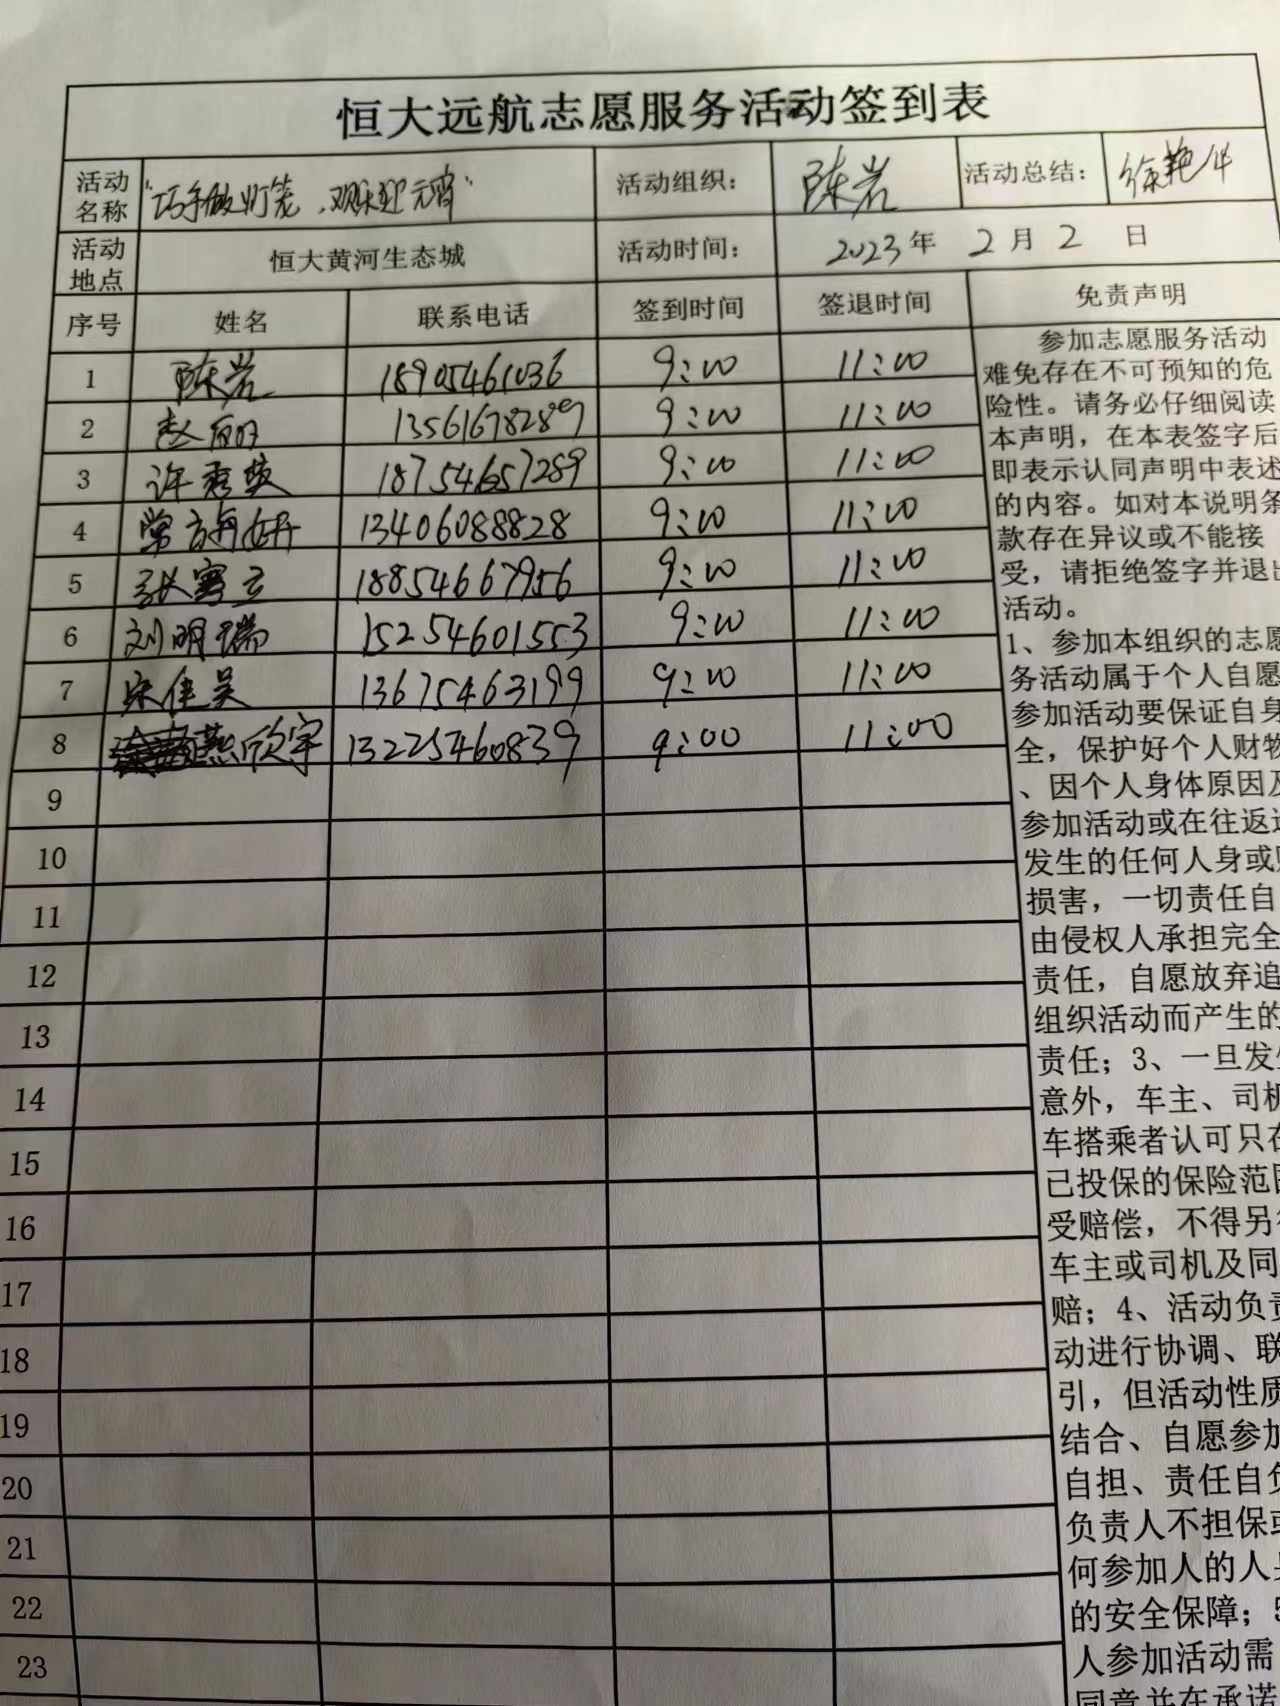 恒大远航志愿服务活动签到表
活动名称 "巧手做灯笼,欢乐迎元宵" 活动组织: 陈岩 活动总结: 徐艳
活动地点 恒大黄河生态城 活动时间: 2023年 2月 2 日
序号 姓名 联系电话 签到时间 签退时间 免责声明
1 陈岩 18905461036 9:00 11:00
2 赵丽 13561678289 9:00 11:00
3 许秀英 18754657289 9:00 11:00
4 常 13406088828 9:00 11:00
5 张 18854667956 9:00 11:00
6 刘明瑞 15254601553 9:00 11:00
7 宋佳昊 13675463199 9:00 11:00
8 燕欣宇 13225460839 9:00 11:00
9
10
11
12
13
14
15
16
17
18
19
20
21
22
23
参加志愿服务活动
难免存在不可预知的危
险性。请务必仔细阅读
本声明，在本表签字后
即表示认同声明中表述
的内容。如对本说明条
款存在异议或不能接
受，请拒绝签字并退出
活动。
1、参加本组织的志愿
务活动属于个人自愿
参加活动要保证自身
全，保护好个人财物
、因个人身体原因及
参加活动或在往返途
发生的任何人身或
损害，一切责任自
由侵权人承担完全
责任，自愿放弃追
组织活动而产生的
责任；3、一旦发生
意外，车主、司机
车搭乘者认可只在
已投保的保险范围
受赔偿，不得另行
车主或司机及同
赔；4、活动负责
动进行协调、联
引，但活动性质
结合、自愿参加
自担、责任自负
负责人不担保或
何参加人的人身
的安全保障；5
人参加活动需
同意并在承诺